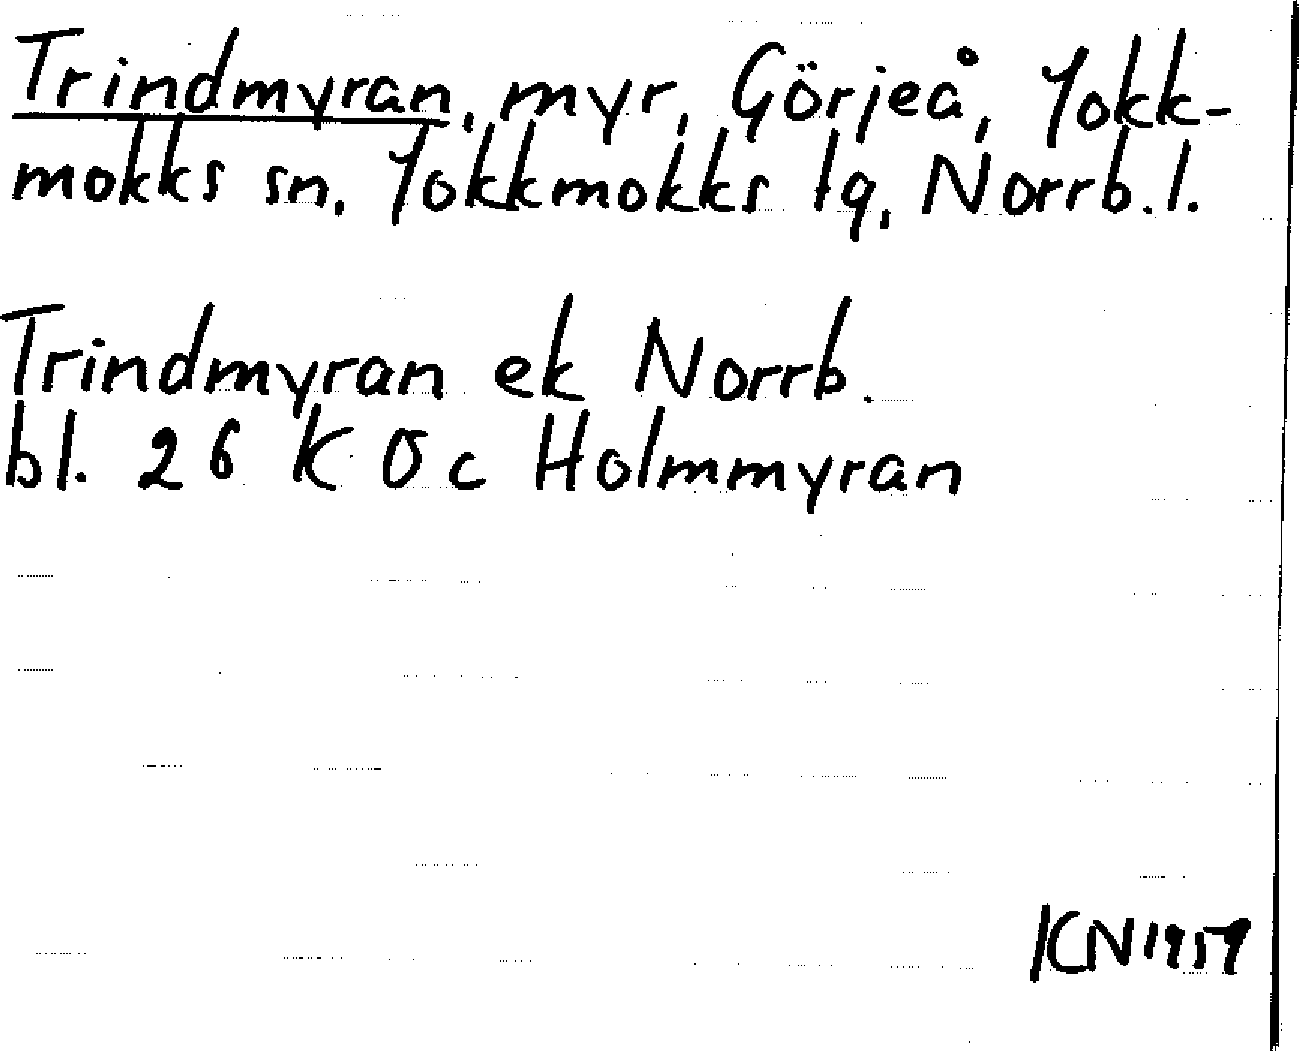 Trindmyran, myr, Görjeå, Jokk-
mokks sn. Jokkmokks lg, Norrb. l.
Trindmyran ek Norrb.
bl. 26 K Ö c Holmmyran
KN 1959